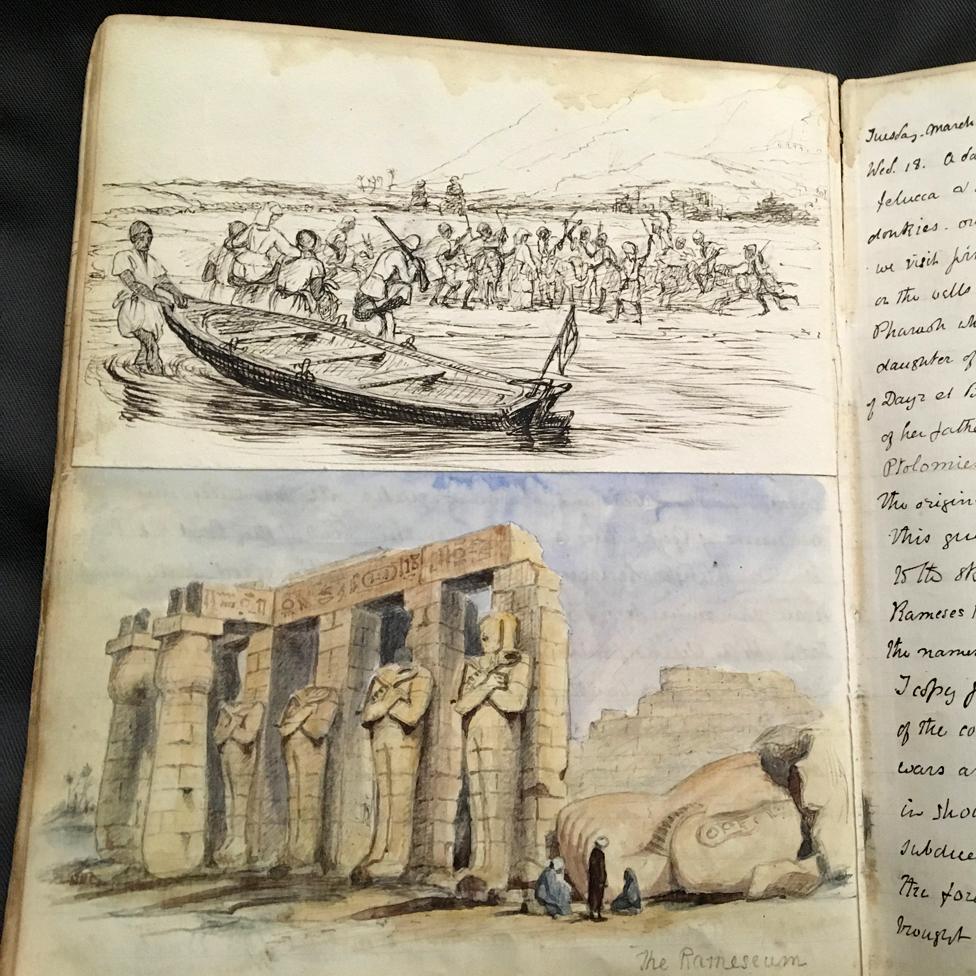 The Rameseum
Tuesday. March
Wed. 18. A da
felucca a
donkies. on
we visit
on the
Pharaoh wh
daughter of
of Dayr el
of her fathe
Ptolomies
the origin
this gre
to the sk
Rameses
the names
I copy f
of the co
wars a
in shor
subdue
The
brought